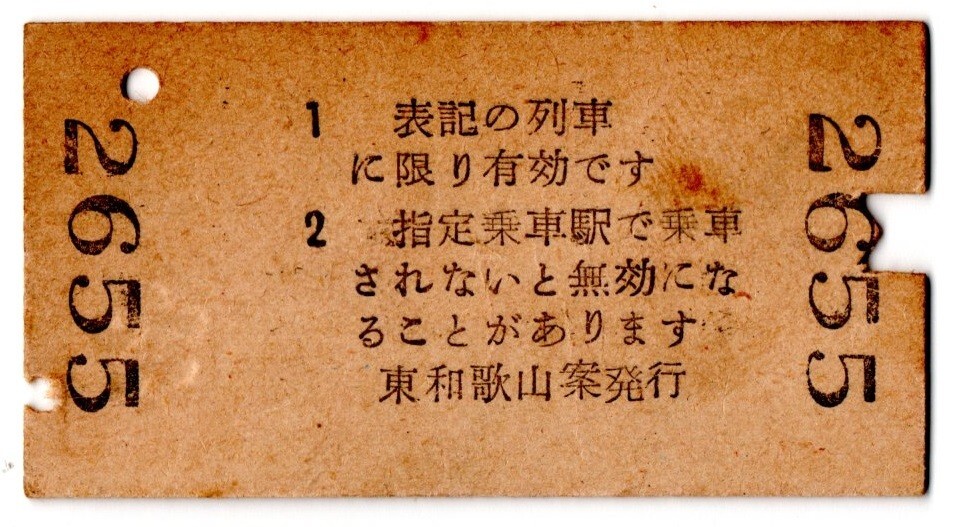 2655
1 表記の列車
に限り有効です
2 指定乗車駅で乗車
されないと無効にな
ることがあります
東和歌山案発行
2655